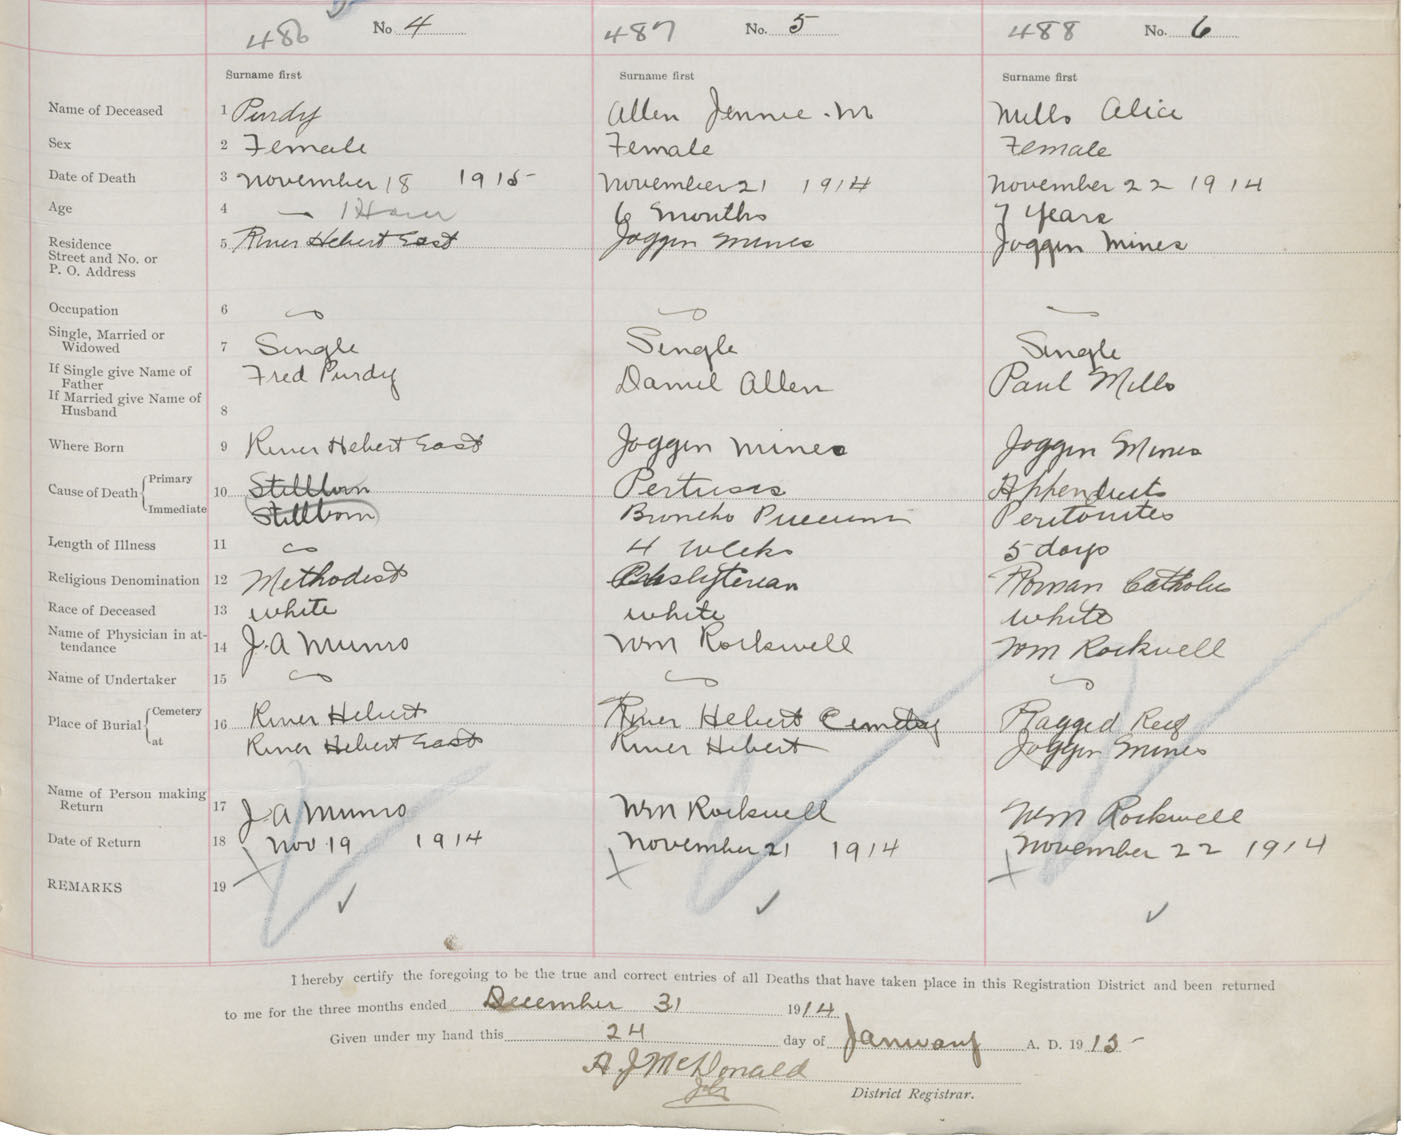 486 No 4 487 No. 5 488 No. 6
Surname first Surname first Surname first
Name of Deceased 1 Purdy Allen Jennie . M Mills Alice
Sex 2 Female Female Female
Date of Death 3 November 18 1915 November 21 1914 November 22 1914
Age 4 — 1 Hour 6 months 7 years
Residence 5 River Hebert East Joggin Mines Joggin Mines
Street and No. or
P. O. Address
Occupation 6
Single, Married or
Widowed 7 Single Single Single
If Single give Name of Fred Purdy Daniel Allen Paul Mills
Father
If Married give Name of
Husband 8
Where Born 9 River Hebert East Joggin Mines Joggin Mines
Cause of Death { Primary 10 Stillborn Pertusis Appendicits
Immediate Stillborn Broncho Peritonites
Length of Illness 11 4 weeks 5 days
Religious Denomination 12 Methodist Presbyterian Roman Catholic
Race of Deceased 13 white white white
Name of Physician in at-
tendance 14 J. A Munro Wm Rockwell Wm Rockwell
Name of Undertaker 15
Place of Burial { Cemetery 16 River Hebert River Hebert Cemetery Ragged Reef
at River Hebert East River Hebert Joggin Mines
Name of Person making
Return 17 J A Munro Wm Rockwell Wm Rockwell
Date of Return 18 Nov 19 1914 November 21 1914 November 22 1914
REMARKS 19
I hereby certify the foregoing to be the true and correct entries of all Deaths that have taken place in this Registration District and been returned
to me for the three months ended December 31 1914
Given under my hand this 24 day of January A. D. 1915
A J McDonald
District Registrar.